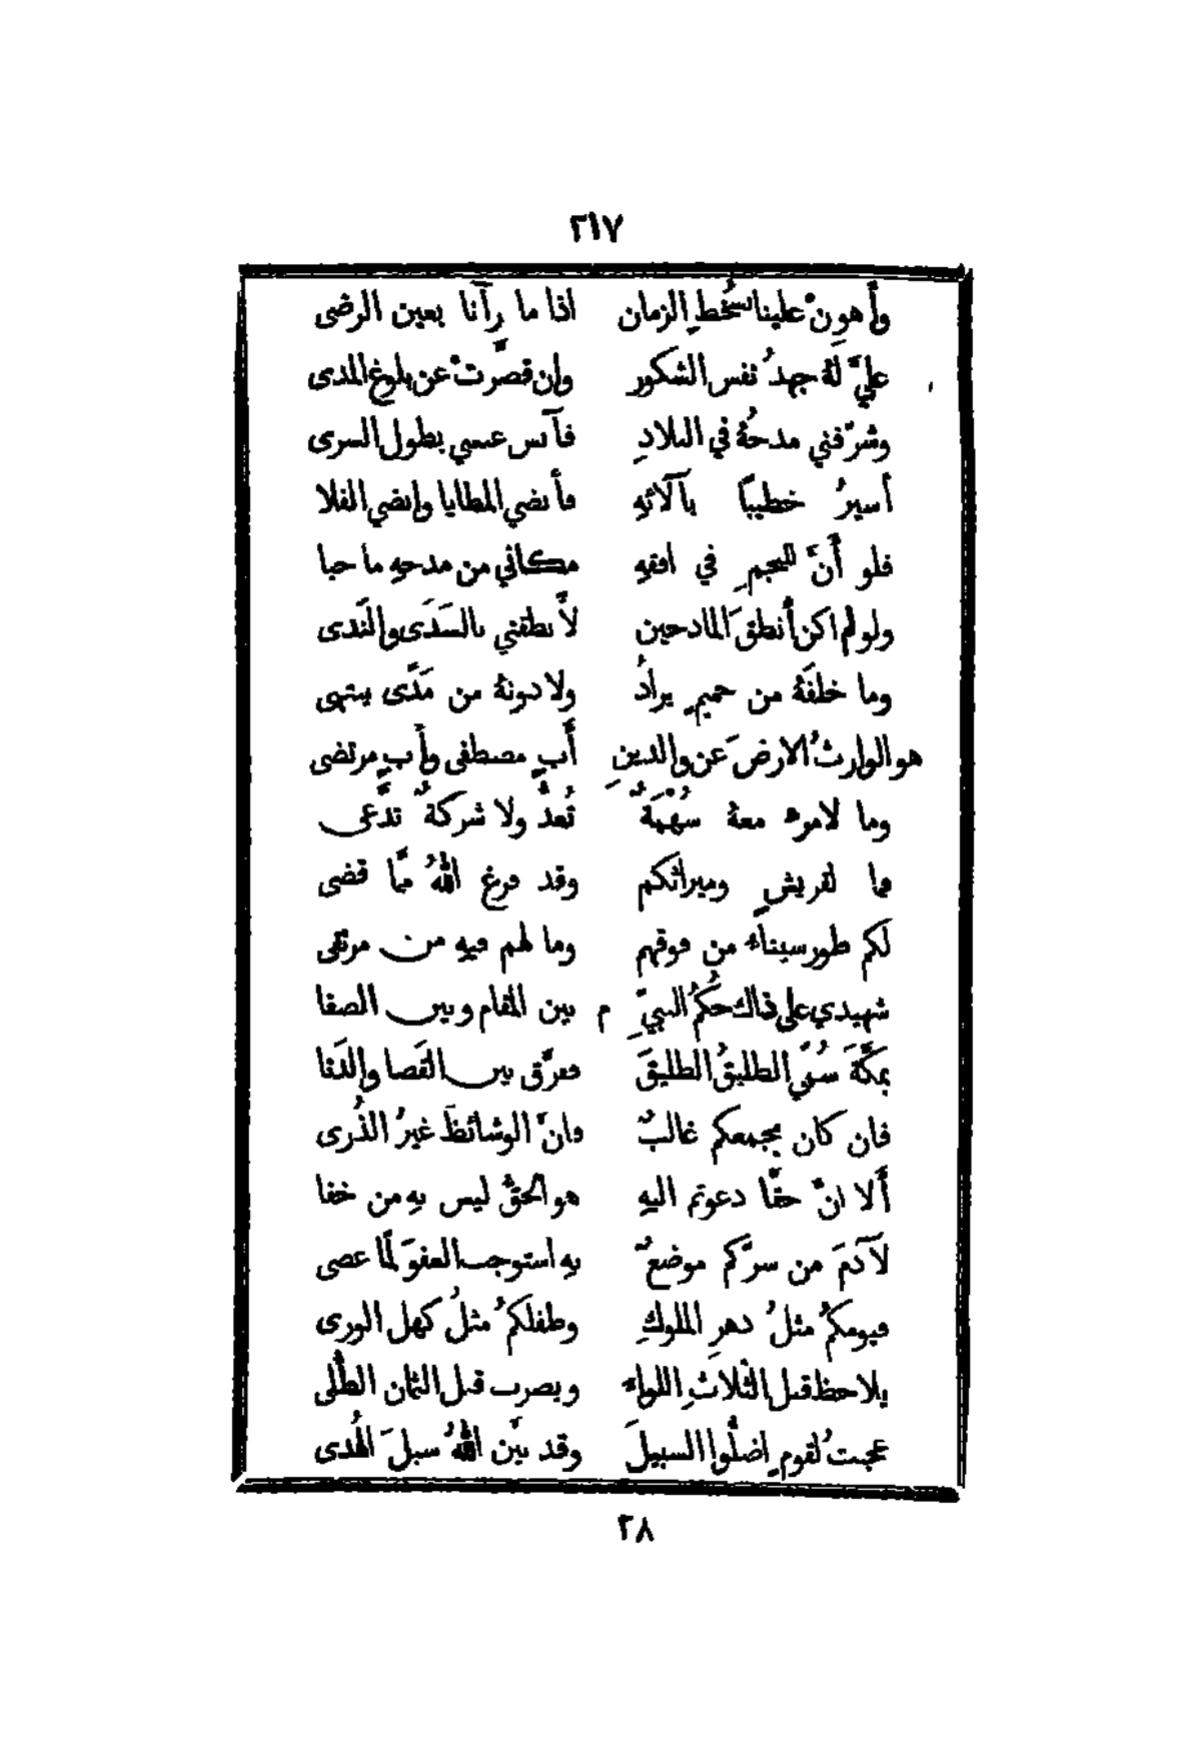 ٢١٧
وأَهوِنْ علينا بسُخطِ الزمان اذا ما رآنا بعين الرضى
عليَّ لهُ جهدُ نفس الشكور وان قصَّرتْ عن بلوغ المدى
وشرَّفني مدحُهُ في البلادِ فآنس عنسي بطول السرى
أسيرُ خطيبًا بآلائهِ فأنضي المطايا وانضي الفلا
فلو أَنَّ للنجمِ في افقهِ مكاني من مدحهِ ما خبا
ولو لم اكن أَنطقَ المادحين لأَنطقني بالسَدَى والنَدى
وما خلفَهُ من حميمٍ يرادُ ولا دونهُ من مَدًى ينتهى
هو الوارثُ الارضَ عن والدينِ أَبٍ مصطفى وأَبٍ مرتضى
وما لامرءٍ معهُ سُهْمَةٌ تُعدُّ ولا شركةٌ تدَّعى
فما لقريشٍ وميراثكم وقد فرغ اللهُ ممَّا قضى
لكم طور سيناء من فوقهم وما لهم فيهِ من مرتقى
شهيدي على ذاك حُكمُ النبيِّ م بين المقام وبين الصفا
بمكَّةَ سُمِّي الطليقُ الطليقَ ففرَّق بين القَصا والدَنا
فان كان يجمعكم غالبٌ فانَّ الوشائظَ غيرُ الذُرى
أَلا انَّ حقًّا دعوتم اليهِ هو الحقُّ ليس بهِ من خفا
لآدمَ من سرّكم موضعٌ بهِ استوجب العفوَ لمَّا عصى
فيومكمُ مثلُ دهرِ الملوكِ وطفلكمُ مثلُ كهل الورى
يلاحظ قبل الثلاثِ اللواء ويضرب قبل الثمان الطُّلى
عجبتُ لقومٍ اضلُّوا السبيلَ وقد بيَّن اللهُ سبلَ الهُدى
٢٨